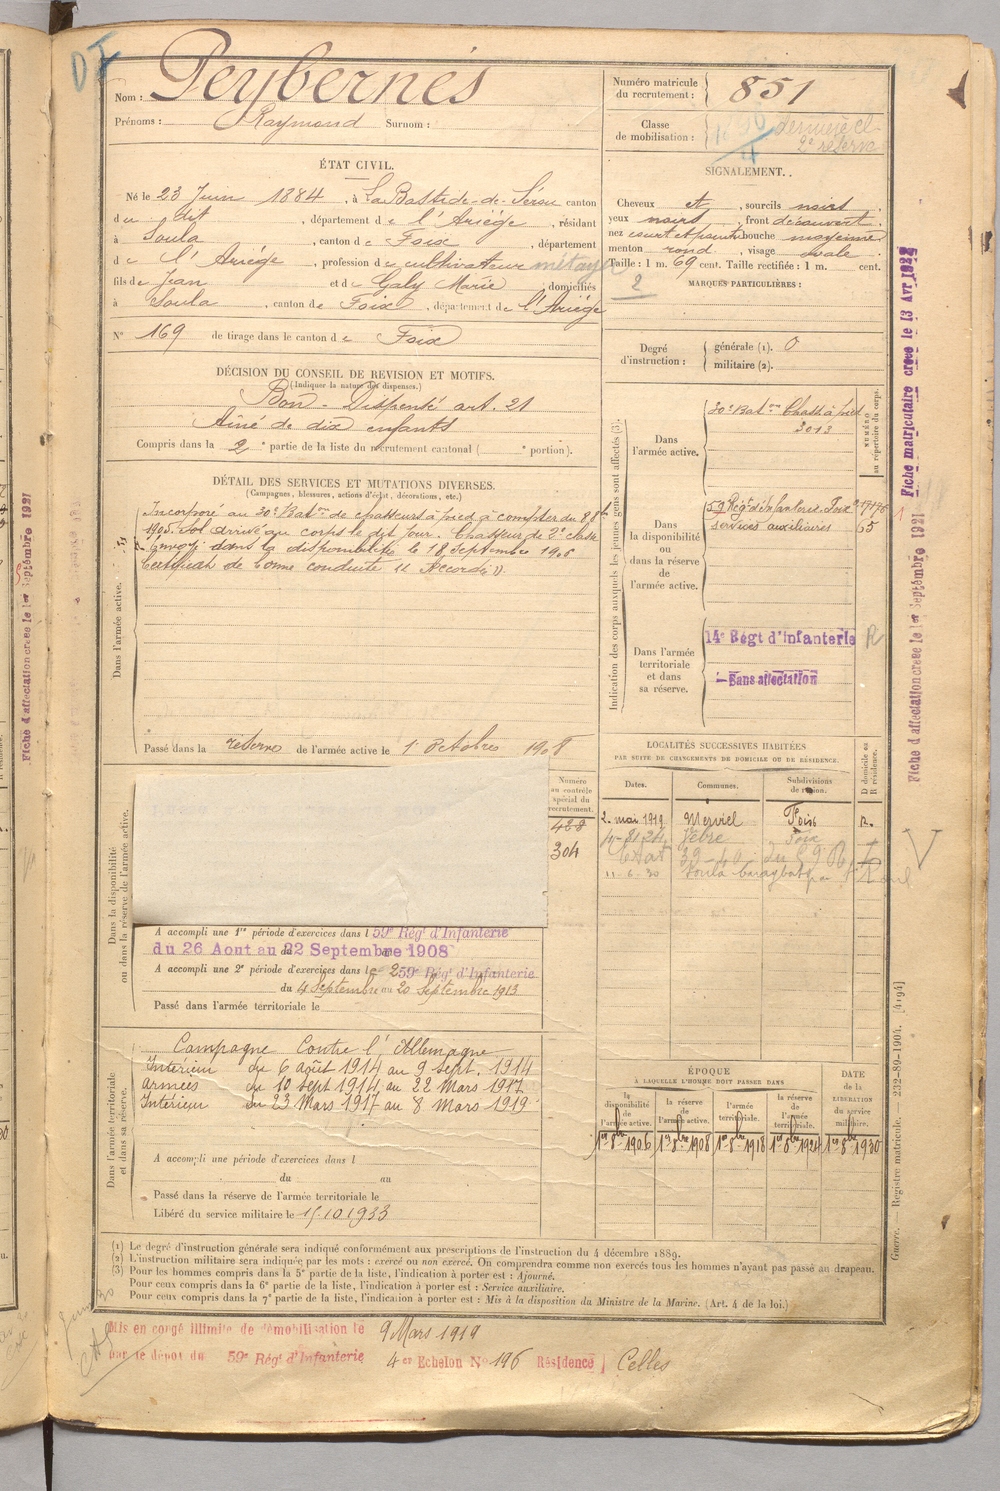 DI
Nom : Peybernès
Prénoms : Raymond Surnom :
Numéro matricule du recrutement : 851
Classe de mobilisation : dernière cl
2e réserve
ÉTAT CIVIL.
Né le 23 Juin 1884, à La Bastide-de-Sérou canton
du dit, département de l'Ariège, résidant
à Soula, canton de Foix, département
de l'Ariège, profession de cultivateur métayer
fils de Jean et de Galy Marie, domiciliés
à Soula, canton de Foix, département de l'Ariège
N° 169 de tirage dans le canton de Foix
SIGNALEMENT.
Cheveux et , sourcils noirs
yeux noirs , front découvert
nez court et pointu bouche moyenne
menton rond , visage ovale
Taille : 1 m. 69 cent. Taille rectifiée : 1 m. cent.
2
MARQUES PARTICULIÈRES :
Degré d'instruction : générale (1). 0
militaire (2).
DÉCISION DU CONSEIL DE REVISION ET MOTIFS.
(Indiquer la nature des dispenses.)
Bon - Dispensé art. 21
Aîné de dix enfants
Compris dans la 2e partie de la liste du recrutement cantonal ( e portion).
DÉTAIL DES SERVICES ET MUTATIONS DIVERSES.
(Campagnes, blessures, actions d'éclat, décorations, etc.)
Dans l'armée active.
Incorporé au 30e Baton de chasseurs à pied à compter du 8 8bre
1905. Sol. arrivé au corps le dit jour. Chasseur de 2e classe
Envoyé dans la disponibilité le 18 Septembre 1906
Certificat de bonne conduite "Accordé"
Passé dans la réserve de l'armée active le 1 Octobre 1908
Indication des corps auxquels les jeunes gens sont affectés (3).
NUMÉRO au répertoire du corps.
Dans l'armée active.
30e Baton Chass. à pied
3013
Dans la disponibilité ou dans la réserve de l'armée active.
59 Régt d'Infanterie Foix
services auxiliaires
Dans l'armée territoriale et dans sa réserve.
14e Régt d'Infanterie R
Sans affectation
LOCALITÉS SUCCESSIVES HABITÉES
PAR SUITE DE CHANGEMENTS DE DOMICILE OU DE RÉSIDENCE.
Dates. Communes. Subdivisions de région. D domicile ou R résidence.
2. mai 1919 Merviel Foix R.
Vèbre Foix
11-6-30 Soula
Dans la disponibilité ou dans la réserve de l'armée active.
Numéro au contrôle spécial du recrutement.
428
304
A accompli une 1re période d'exercices dans l 59e Régt d'Infanterie
du 26 Aout au 22 Septembre 1908
A accompli une 2e période d'exercices dans le 59e Régt d'Infanterie
du 4 Septembre au 20 Septembre 1913
Passé dans l'armée territoriale le
Dans l'armée territoriale et dans sa réserve.
Campagne Contre l'Allemagne
Intérieur du 6 août 1914 au 9 sept. 1914
Armées du 10 Sept 1914 au 22 Mars 1917
Intérieur du 23 Mars 1917 au 8 Mars 1919
A accompli une période d'exercices dans l
du au
Passé dans la réserve de l'armée territoriale le
Libéré du service militaire le 15.10 1933
ÉPOQUE
À LAQUELLE L'HOMME DOIT PASSER DANS
la disponibilité de l'armée active.
la réserve de l'armée active.
l'armée territoriale.
la réserve de l'armée territoriale.
DATE de la LIBÉRATION du service militaire.
1er 8bre 1906 1er 8bre 1908 1er 8bre 1918 1er 8bre 1924 1er 8bre 1930
(1) Le degré d'instruction générale sera indiqué conformément aux prescriptions de l'instruction du 4 décembre 1889.
(2) L'instruction militaire sera indiquée par les mots : exercé ou non exercé. On comprendra comme non exercés tous les hommes n'ayant pas passé au drapeau.
(3) Pour les hommes compris dans la 5e partie de la liste, l'indication à porter est : Ajourné.
Pour ceux compris dans la 6e partie de la liste, l'indication à porter est : Service auxiliaire.
Pour ceux compris dans la 7e partie de la liste, l'indication à porter est : Mis à la disposition du Ministre de la Marine. (Art. 4 de la loi.)
Mis en congé illimité de démobilisation le 9 Mars 1919
par le dépôt du 59e Régt d'Infanterie 4er Echelon No 196 Résidence Celles
Fiche matriculaire créée le 13 Avr 1922
Fiche d'affectation créée le 1er Septembre 1921
Guerre. — Registre matricule. — 232-89-1904. [4194]
Fiche d'affectation créée le 1er Septembre 1921